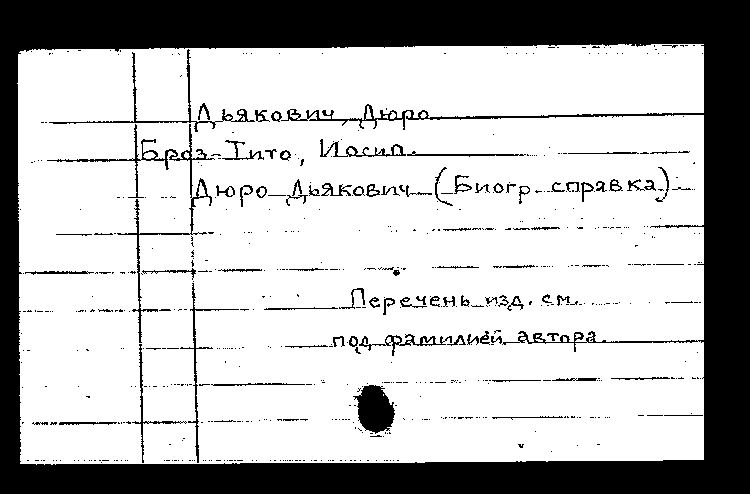 Дьякович, Дюро.
Броз-Тито, Иосип.
Дюро Дьякович (Биогр. справка).
Перечень изд. см.
под фамилией автора.